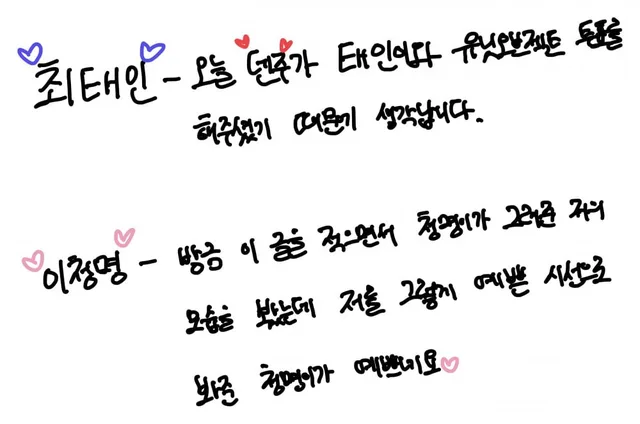 최태인 - 오늘 덴주가 태인이와 유닛오브젝트 투표를
해주셨기 때문에 생각납니다.
이청명 - 방금 이 글을 적으면서 청명이가 그려준 저의
모습을 봤는데 저를 그렇게 예쁜 시선으로
봐준 청명이가 예쁘네요